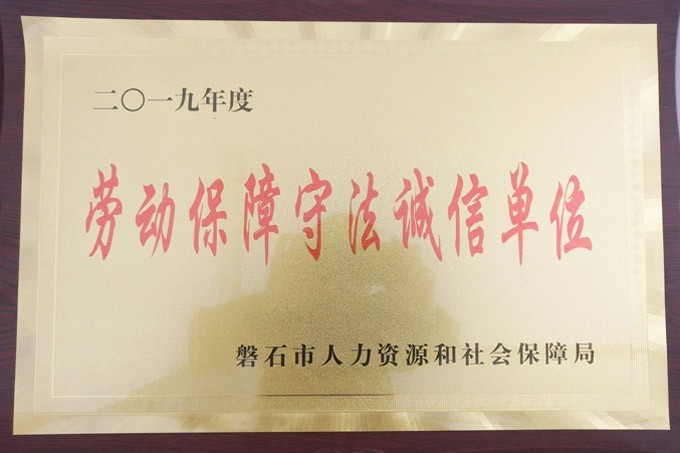 二〇一九年度
劳动保障守法诚信单位
磐石市人力资源和社会保障局